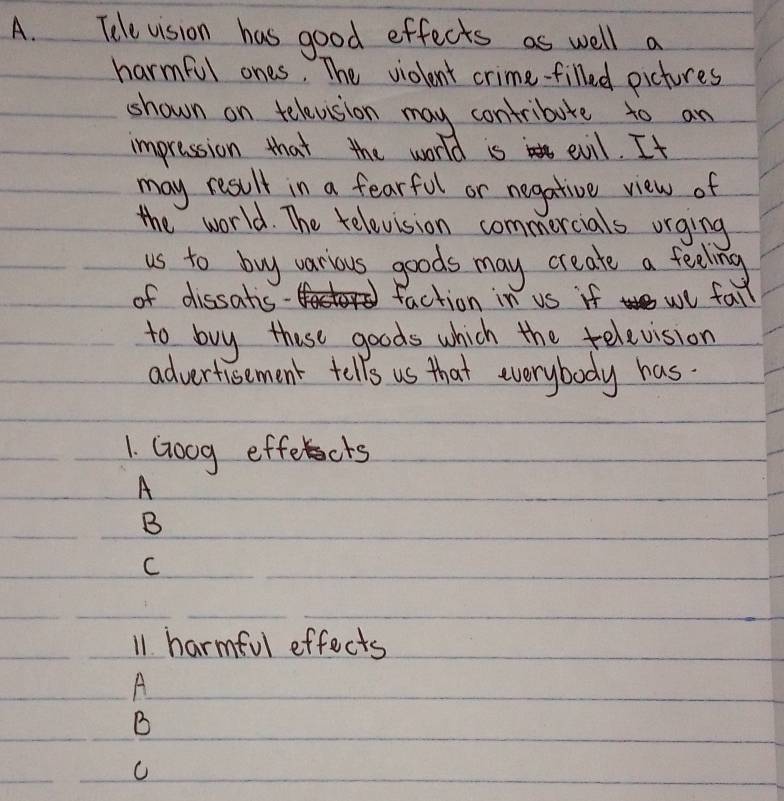 A. Television has good effects as well a
harmful ones. The violent crime-filled pictures
shown on television may contribute to an
impression that the world is evil. It
may result in a fearful or negative view of
the world. The television commercials urging
us to buy various goods may create a feeling
of dissatis-faction in us if we fail
to buy these goods which the television
advertisement tells us that everybody has.
1. Goog effects
A
B
C
11. harmful effects
A
B
C